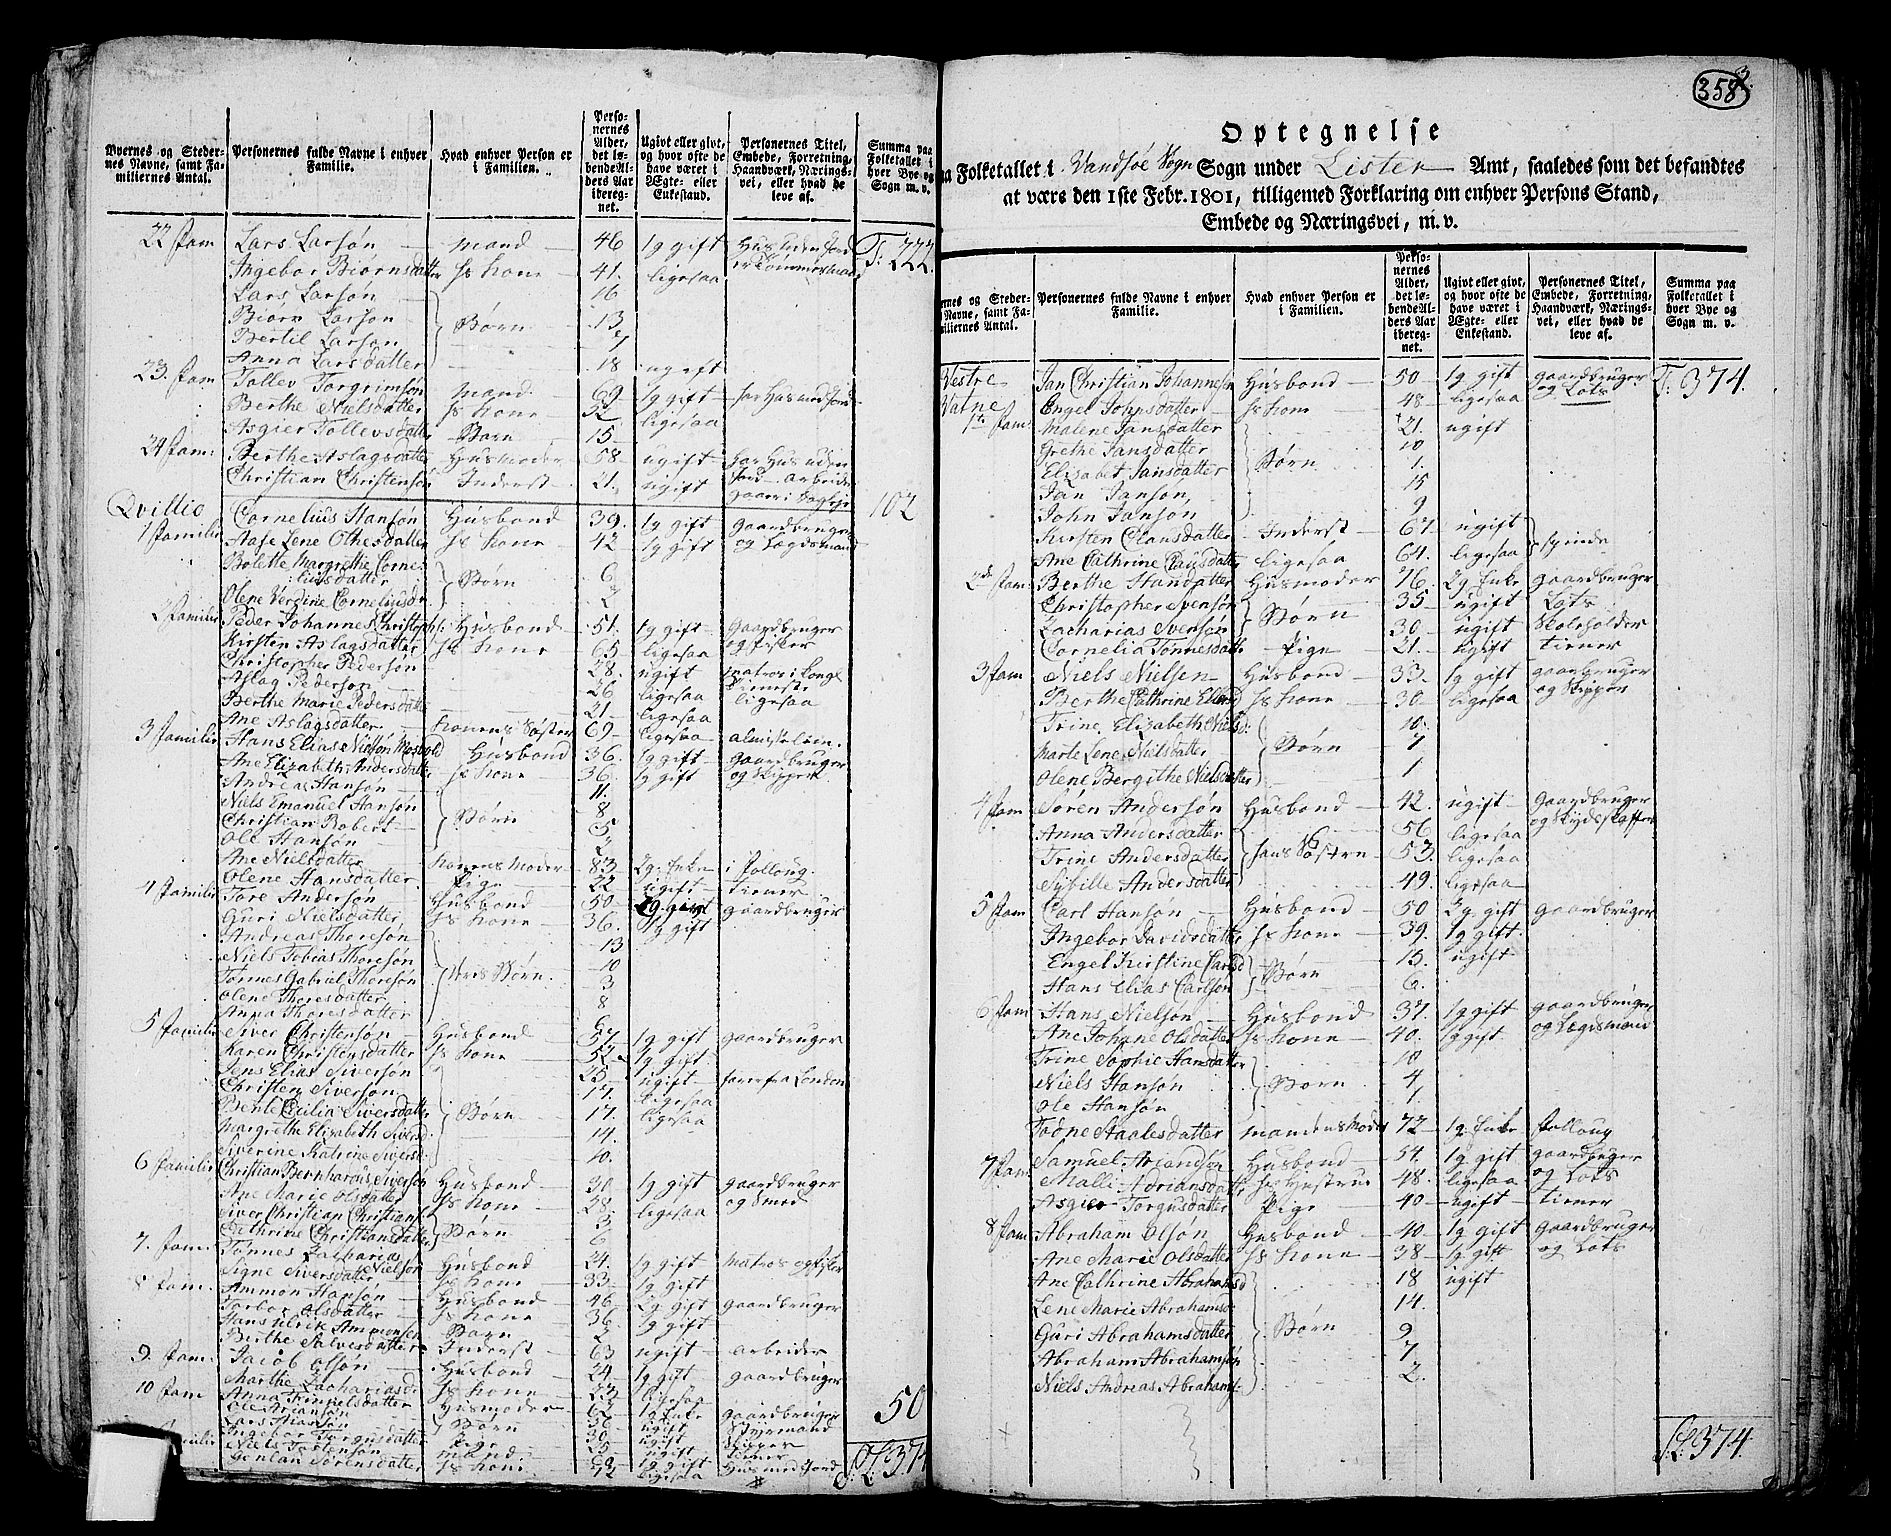 Byernes og Steder-
nes Navne, samt Fa-
miliernes Antal.
Personernes fulde Navne i enhver
Familie.
Hvad enhver Person er
i Familien.
Perso-
nernes
Alder,
det lø-
bende Al-
ders Aar
iberegnet.
Ugivt eller givt,
og hvor ofte de
have været i
Ægte- eller
Enkestand.
Personernes Titel,
Embede, Forretning,
Haandværk, Nærings-
vei, eller hvad de
leve af.
Summa paa
Folketallet i
hver Bye og
Sogn m. v.
22 fam Lars Larsøn mand 46 1g gift Hus uden Jord T: 222.
Ingebor Biørnsdatter hs Kone 41. ligesaa er Tømmermand
Lars Larsøn 16
Biørn Larsøn Børn 13
Bertil Larsøn 7
Anna Larsdatter 18 ugift
23. fam Tollev Torgrimsøn mand 69 1g gift har Hus med Jord
Berthe Nielsdatter hs Kone ligesaa
Asgier Tollevsdatter Barn 15
24 fam: Berthe Aslagsdatter Husmoder 58 ugift har Hus uden
Christian Christensøn Inderst 21. ugift Jord
Qvillio 102
1 familie Cornelius Hansøn Husbond 39. 1g gift gaardbruger
Aase Lene Othesdatter hs Kone 42 1g gift og Lægdsmand
Bolette Margrethe Corne-
liusdatter Børn 6
Olene Verdine Corneliusdr. 2
2 familie Peder Johannes Christoph: Husbond 51. 1g gift gaardbruger
Kirsten Aslagsdatter hs Kone 65 ligesaa og fisker
Christopher Pedersøn 28. ugift matros i Kongl
Aslag Pedersøn 26 ligesaa tieneste
Berthe Marie Pedersdatter 21 ligesaa ligesaa
Ane Aslagsdatter Konens Søster 69 ligesaa almisselem.
3 familie Hans Elias Nielsøn Husbond 36. 1g gift gaardbruger
Ane Elizabeth Andersdatter hs Kone 36. 1g gift og Skipper
Andreas Hansøn 11.
Niels Emanuel Hansøn Børn 8
Christian Robert 5
Ole Hansøn 2
Ane Nielsdatter Konens Moder 83 2g. Enke i Følloug.
Olene Hansdatter Pige 22 ugift tiener
4 familie Tore Andersøn Husbond 50 2g. gift gaardbruger
Guri Nielsdatter hs Kone 36. 1g gift
Andreas Thoresøn 13
Niels Tobias Thoresøn 10
Tønnes Gabriel Thoresøn Børn. 3
Olene Thoresdatter 8
Anna Thoresdatter 6
5 familie Siver Christensøn Husbond 57 1g gift gaardbruger
Karen Christensdatter hs Kone 52 1g gift
Jens Elias Siversøn 25 ugift farer fra London
Christen Siversøn ligesaa
Bente Cecilia Siversdatter Børn 17. ligesaa
Margrethe Elizabeth Siversd: 14.
Siverine Katrine Siversd: 10.
6 familie Christian Bernhardus Siversøn Husbond 30 1g gift gaardbruger
Ane Marie Olsdatter hs Kone 28. ligesaa og Smed
Siver Christian Christians: 3
Cathrine Christiansdatter Børn 6
7. fam: Tønnes Zacharias
Nielsøn Husbond 24. 1g gift matros og fisker
Signe Siversdatter hs Kone 33 1g gift
8 fam: Ammon Hansøn Husbond 46 2g gift gaardbruger
Torbor Olsdatter hs Kone 36. 1g gift
Hans Ulrik Ammonsen Barn 2
Berthe Salvesdatter Inderst 63 ugift arbeider
9. fam: Jacob Olsøn Husbond 24 1g gift gaardbruger
Marthe Zachariasd. hs Kone 23 ligesaa
10 fam Anna Trinnelsdatter Husmoder 62 1g Enke gaardbruger 50
Ole Ariansøn Børn 36 ugift Styrmand
Lars Ariansøn 30. ugift
Ingebor Torgusdatter Pige 25 ugift tiener
Niels Torlensøn mand 1g gift Hus med Jord
Sørensdatter hs Kone 72 ligesaa L. 374
358
Optegnelse
Folketallet i Vandsøe Sogn Sogn under Lister Amt, saaledes som det befandtes
at være den 1ste Febr. 1801, tilligemed Forklaring om enhver Persons Stand,
Embede og Næringsvei, m. v.
ernes og Steder-
Navne, samt Fa-
miliernes Antal.
Personernes fulde Navne i enhver
Familie.
Hvad enhver Person er
i Familien.
Perso-
nernes
Alder,
det lø-
bende Al-
ders Aar
iberegnet.
Ugivt eller givt,
og hvor ofte de
have været i
Ægte- eller
Enkestand.
Personernes Titel,
Embede, Forretning,
Haandværk, Nærings-
vei, eller hvad de
leve af.
Summa paa
Folketallet i
hver Bye og
Sogn m. v.
Vestre Jan Christian Johannesøn Husbond 50 1g gift gaardbruger T. 374.
Vatne Engel Johnsdatter hs Kone 48 ligesaa og Lots
1te fam Malene Jansdatter 21. ugift
Grethe Jansdatter 10
Elizabet Jansdatter Børn 1.
Jan Jansøn 15
John Jansøn 9
Kirsten Clausdatter Inderst 67 ugift spinde
Ane Cathrine Clausdatter ligesaa 64. ligesaa
2de fam Berthe Hansdatter Husmoder 76. 2g Enke gaardbruger
Christopher Svensøn Børn 35 ugift Lots
Zacharias Svensøn 30 ugift Skoleholder
Cornelia Tønnesdatter Pige 21. ugift tiener
3 fam Niels Nielsen Husbond 33. 1g gift gaardbruger
Berthe Cathrine Ellend hs Kone 30. ligesaa og Skipper
Trine Elizabeth Nielsd: 10.
Marte Lene Nielsdatter Børn 7
Olene Bergithe Nielsdatter 1
4 fam Søren Andersøn Husbond 42. ugift Gaardbruger
Anna Andersdatter 56 ligesaa og Skydsskaffer
Trine Andersdatter hans Søstre 53. ligesaa
Sybille Andersdatter 49. ligesaa
5 fam Carl Hansøn Husbond 50 2g. gift gaardbruger
Ingebor Davidsdatter hs Kone 39. 1g gift
Engel Kirstine Carlsd Børn 15. ugift
Hans Elias Carlsøn 6.
6 fam Hans Nielsøn Husbond 37. 1g gift gaardbruger
Ane Johane Olsdatter hs Kone 40. 1g gift og Lægdsmand
Trine Sophie Hansdatter 10
Niels Hansøn Børn 4
Ole Hansøn 1.
Tadne Staalesdatter mandens Moder 72 1g. Enke Følloug
7 fam Samuel Ariansøn Husbond 54. 1g gift gaardbruger
Malli Adriansdatter hs Hustrue 48. ligesaa og Lots
Asgier Torgusdatter Pige 40 ugift tiener
8 fam Abraham Olsøn Husbond 40 1g gift Gaardbruger
Ane Marie Olsdatter hs Kone 38 1g gift og Lots
Ane Cathrine Abrahamsd 18 ugift
Lene Marie Abrahamsd 14.
Guri Abrahamsdatter Børn 9
Abraham Abrahamsøn 7
Niels Andreas Abrahams: 2.
L. 374.